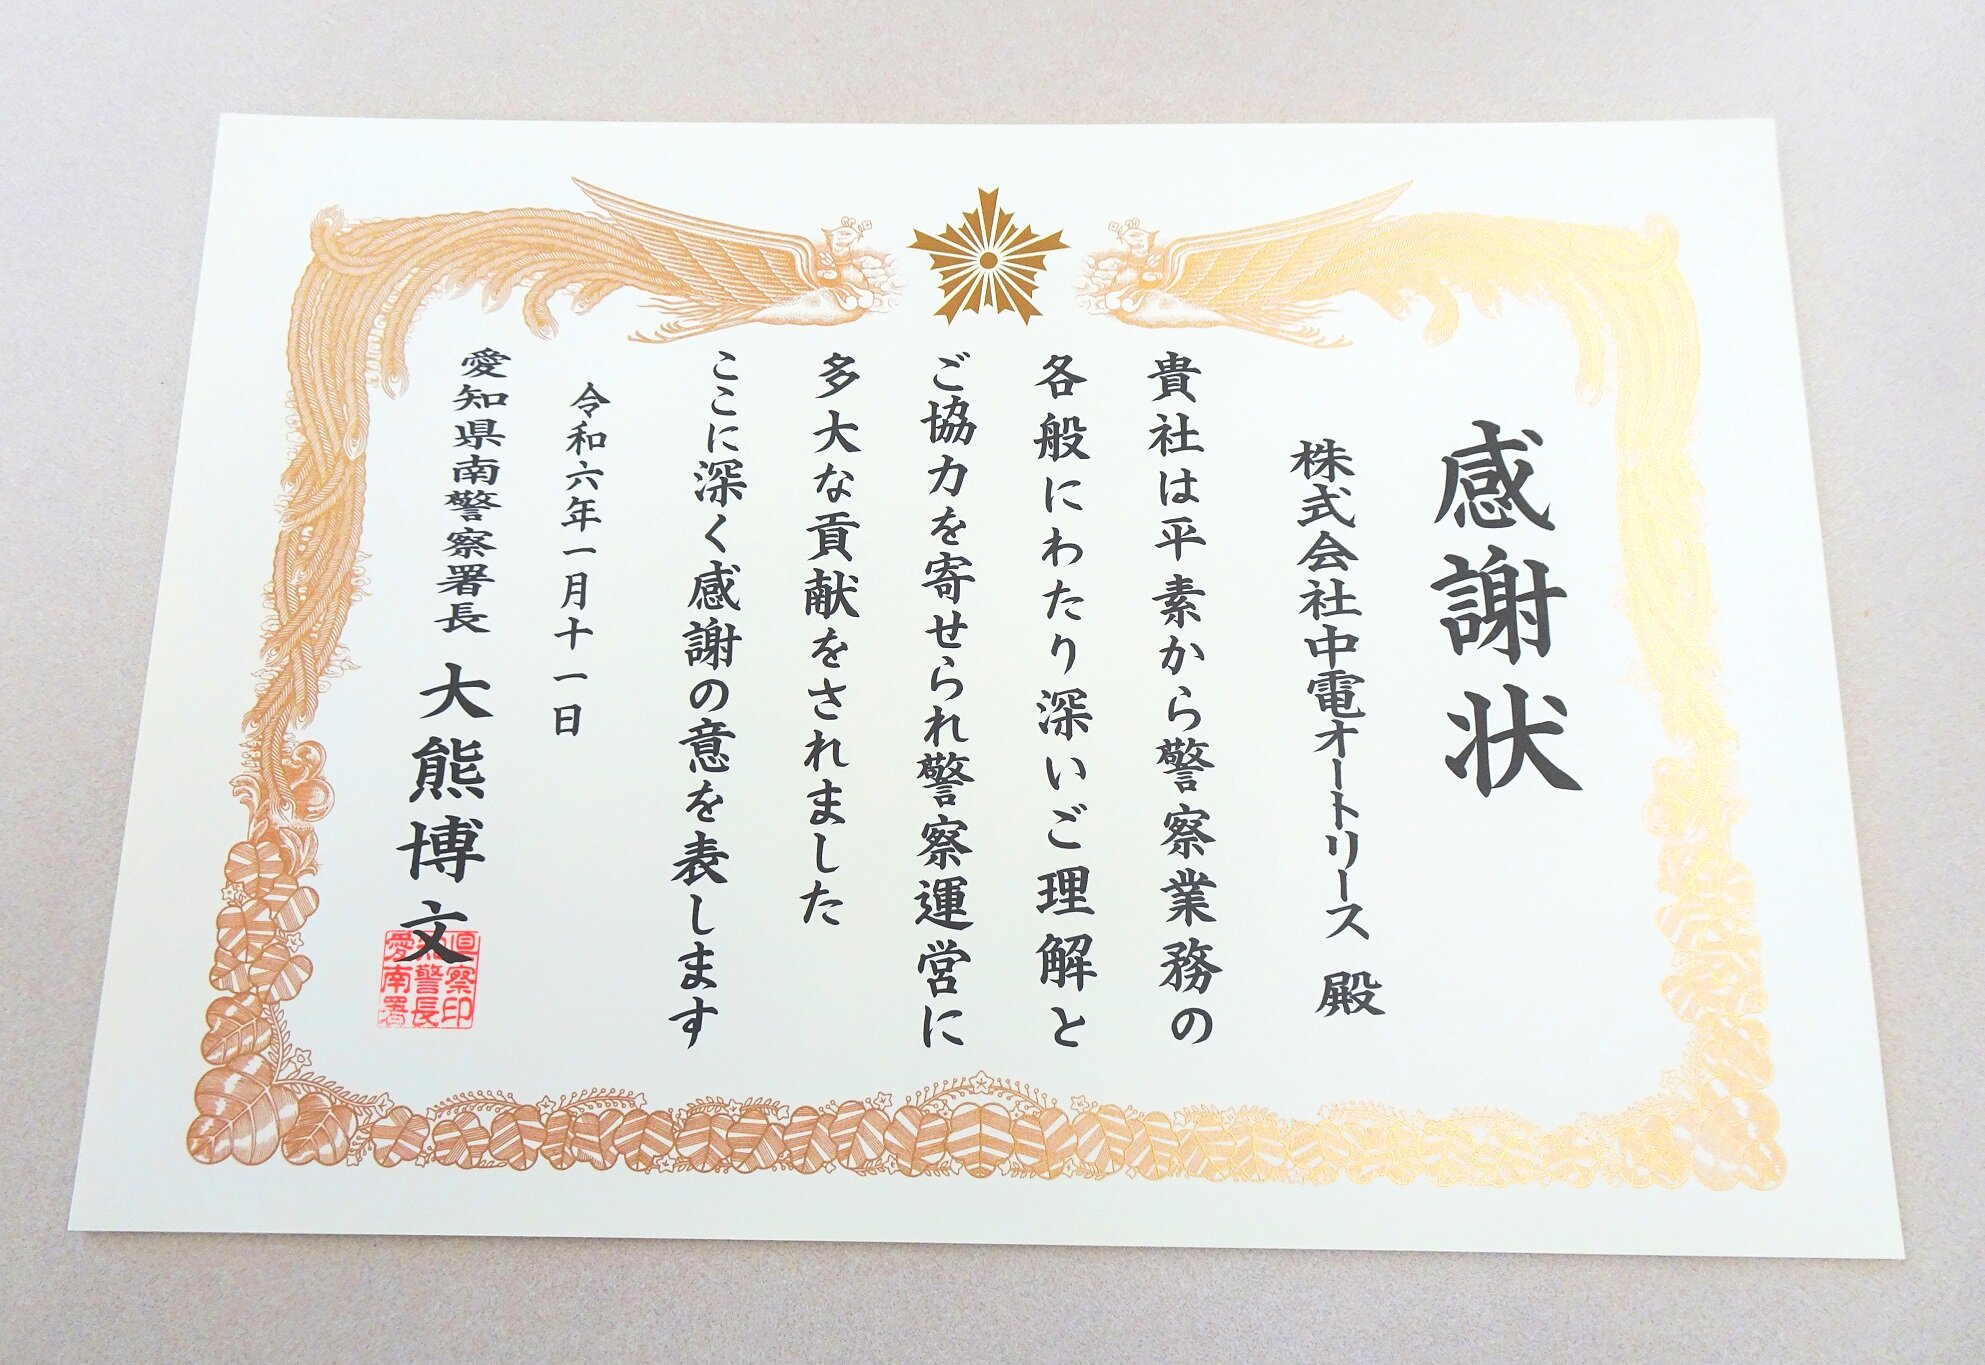 感謝状
株式会社中電オートリース 殿
貴社は平素から警察業務の
各般にわたり深いご理解と
ご協力を寄せられ警察運営に
多大な貢献をされました
ここに深く感謝の意を表します
令和六年一月十一日
愛知県南警察署長 大熊博文
愛知県南警察署長印